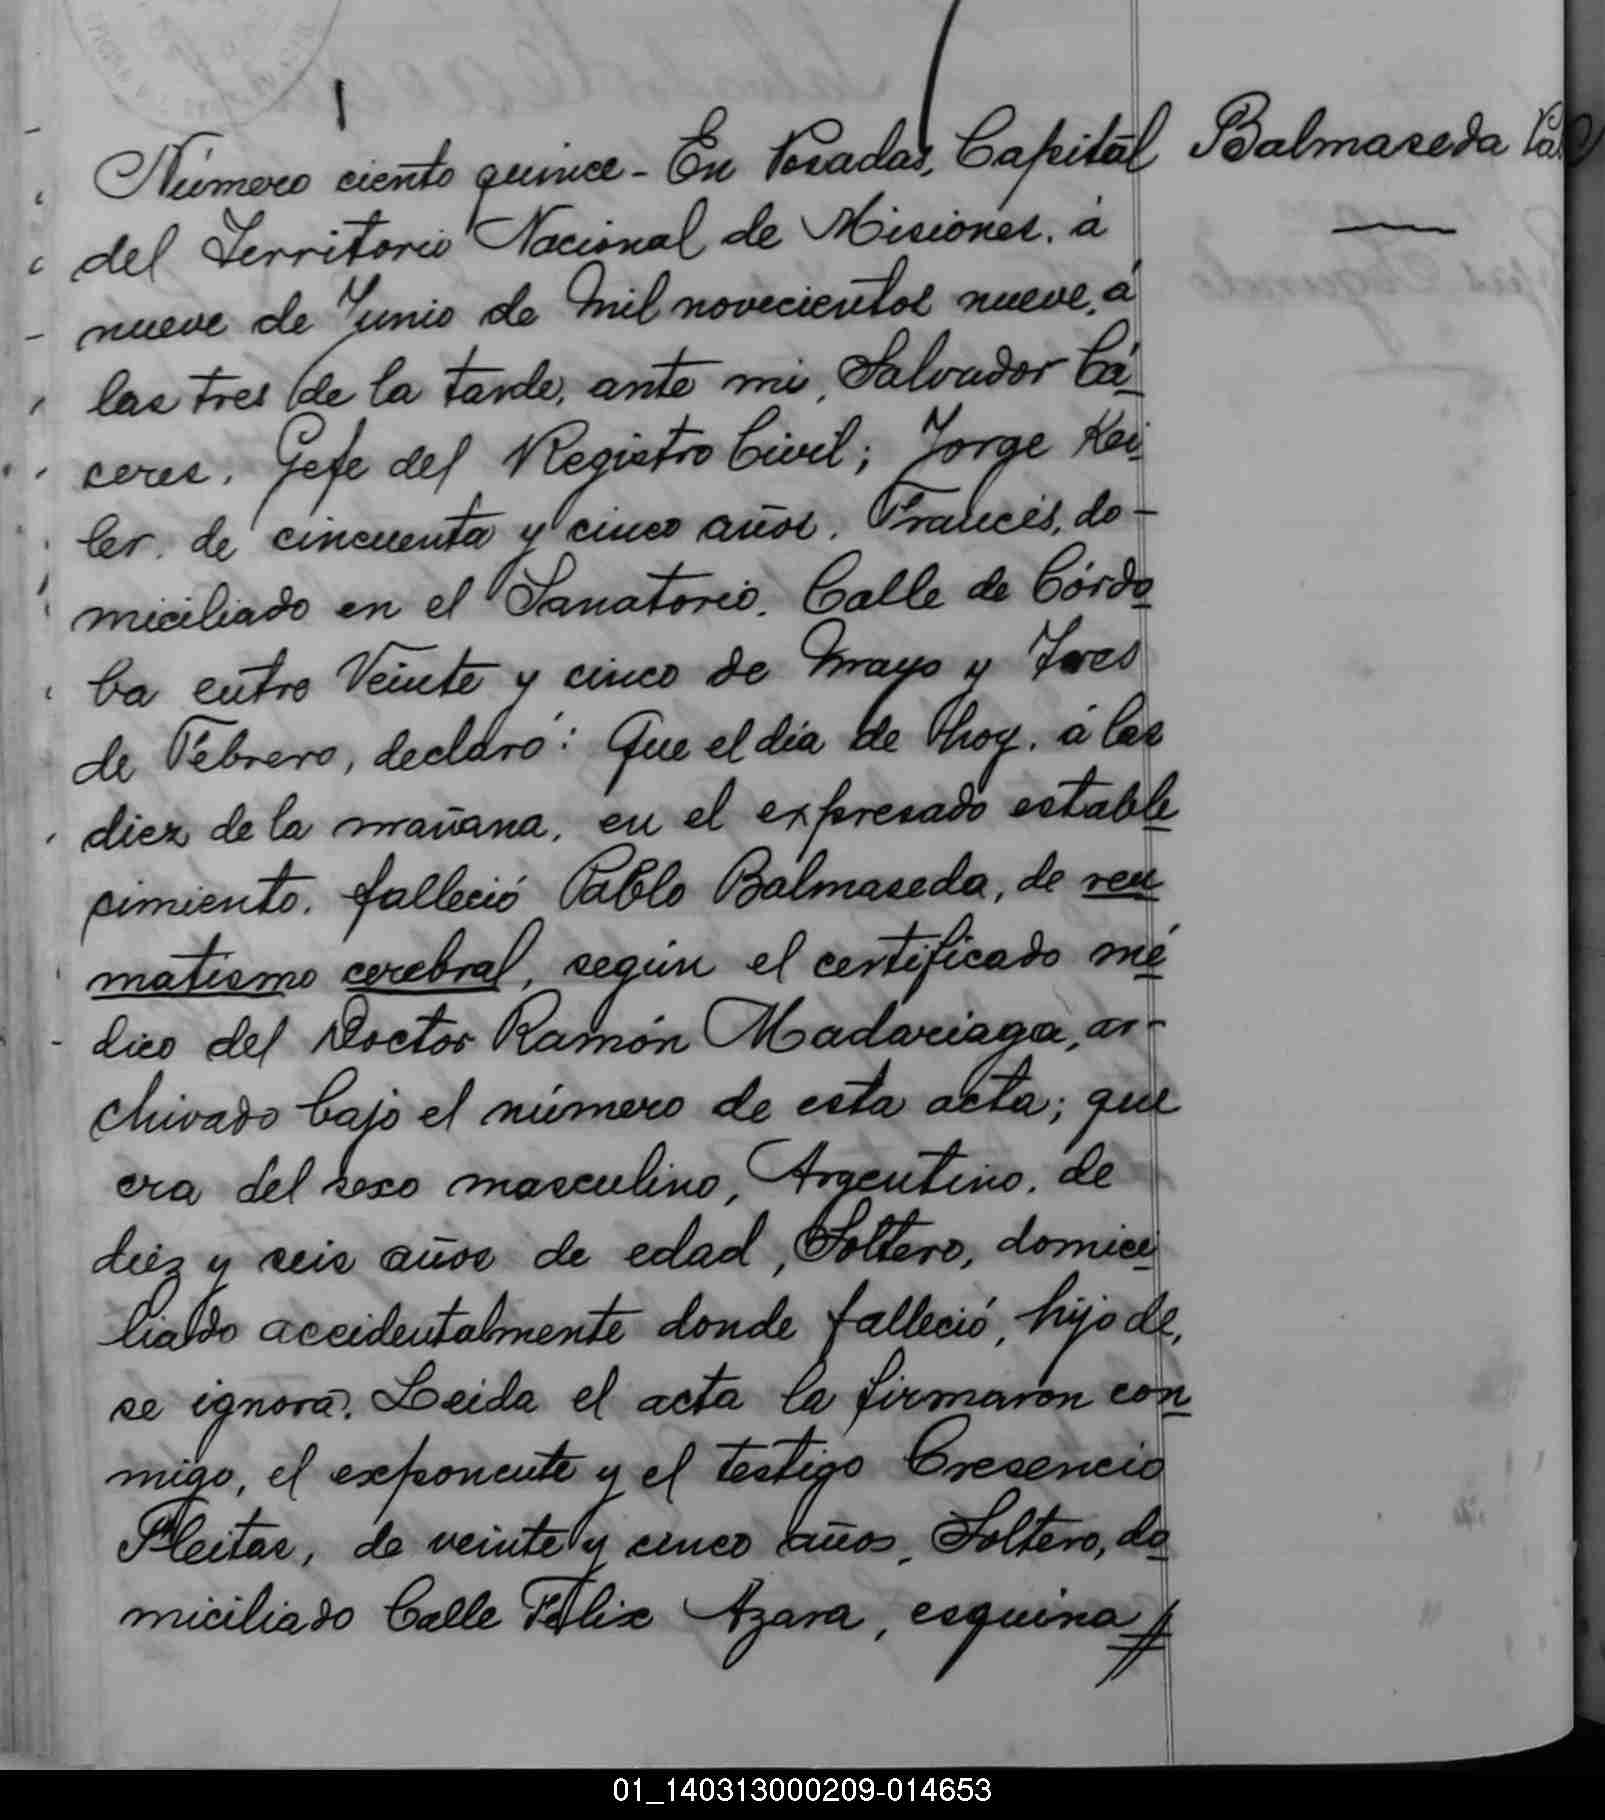 Número ciento quince - En Posadas, Capital
Balmaseda
del Territorio Nacional de Misiones, á
nueve de Junio de mil novecientos nueve, á
las tres de la tarde, ante mi, Salvador Cá-
ceres, Gefe del Registro Civil; Jorge Kei-
ler, de cincuenta y cinco años, Francés, do-
miciliado en el Sanatorio, Calle de Córdo-
ba entre Veinte y cinco de Mayo y Tres
de Febrero, declaró: Que el día de hoy, á las
diez de la mañana, en el expresado estable-
cimiento, falleció Pablo Balmaseda, de reu-
matismo cerebral, según el certificado mé-
dico del Doctor Ramón Madariaga, ar-
chivado bajo el número de esta acta; que
era del sexo masculino, Argentino, de
diez y seis años de edad, Soltero, domici-
liado accidentalmente donde falleció, hijo de,
se ignora. Leida el acta la firmaron con-
migo, el exponente y el testigo Cresencio
Fleitas, de veinte y cinco años, Soltero, do-
miciliado Calle Felix Azara, esquina //
01_140313000209-014653